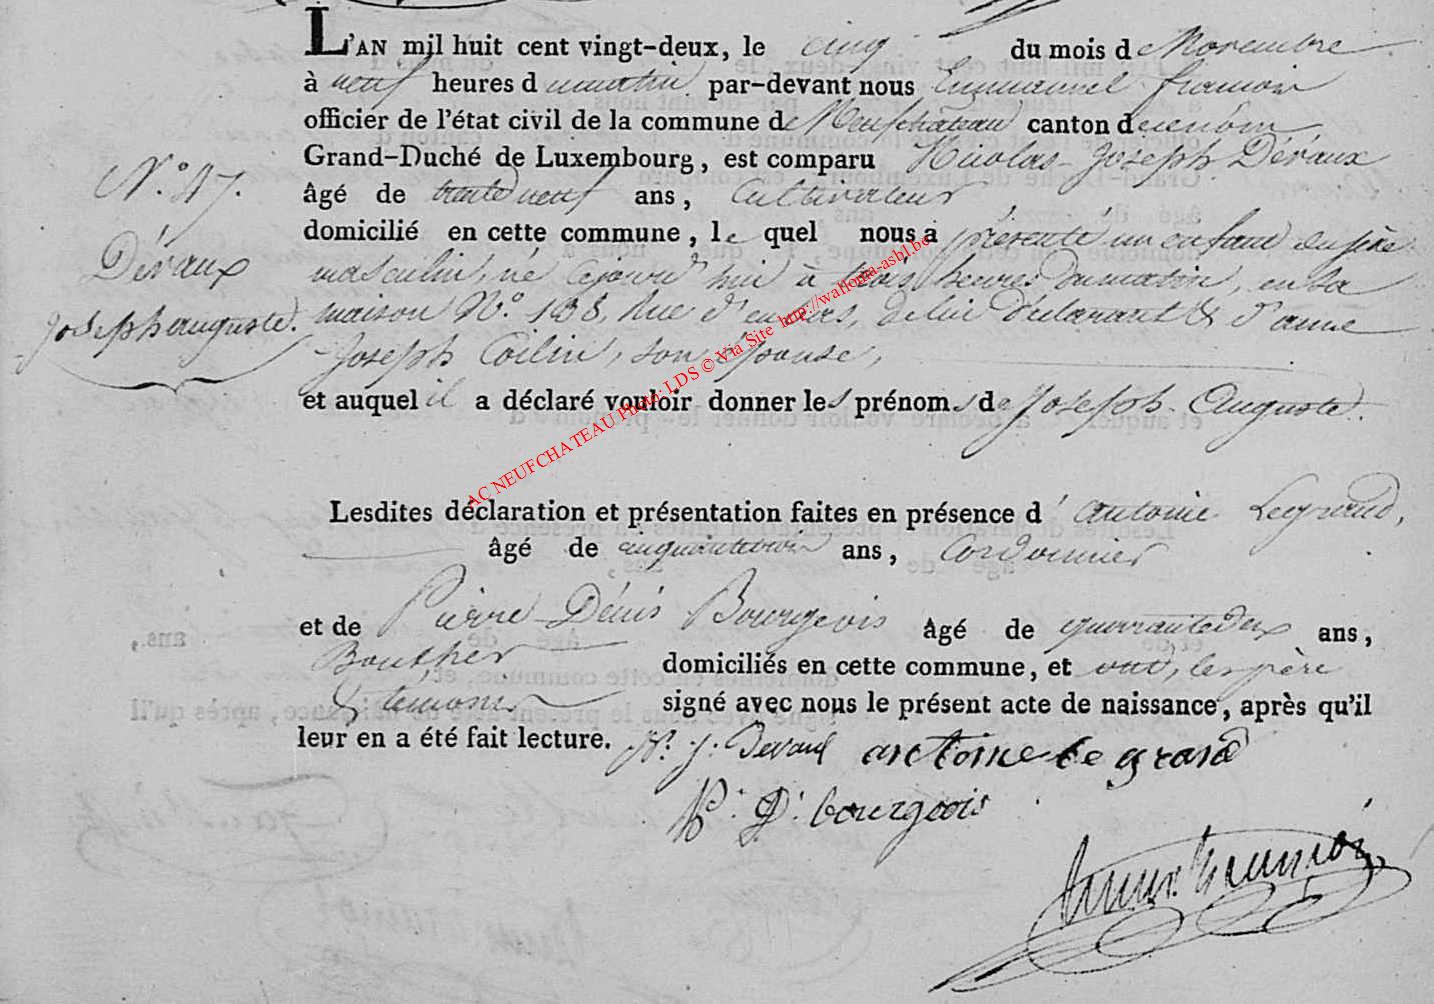 L'AN mil huit cent vingt-deux, le cinq du mois de Novembre
à neuf heures du matin par-devant nous Emmanuel
officier de l'état civil de la commune de Neufchâteau canton de ce nom,
Grand-Duché de Luxembourg, est comparu Nicolas-Joseph Dévaux
âgé de trente neuf ans, Cultivateur
domicilié en cette commune, le quel nous a présenté un enfant du sexe
masculin, né cejourd'hui à trois heures du matin, en sa
maison N.° 138, Rue d'en bas, de lui déclarant & d'anne
Joseph Collin, son épouse,
et auquel il a déclaré vouloir donner les prénoms de Joseph-Auguste.
N.° 47.
Dévaux
Joseph auguste.
Lesdites déclaration et présentation faites en présence d'antoine Legrand,
âgé de ans, Cordonnier
et de Pierre Dénis Bourgeois âgé de quarantedeux ans,
domiciliés en cette commune, et ont, les père
& temoins signé avec nous le présent acte de naissance, après qu'il
leur en a été fait lecture. N. J. Devaux antoine le grand
P. D. bourgeois
AC NEUFCHATEAU Photo: LDS © Via Site http://wallonia-asbl.be